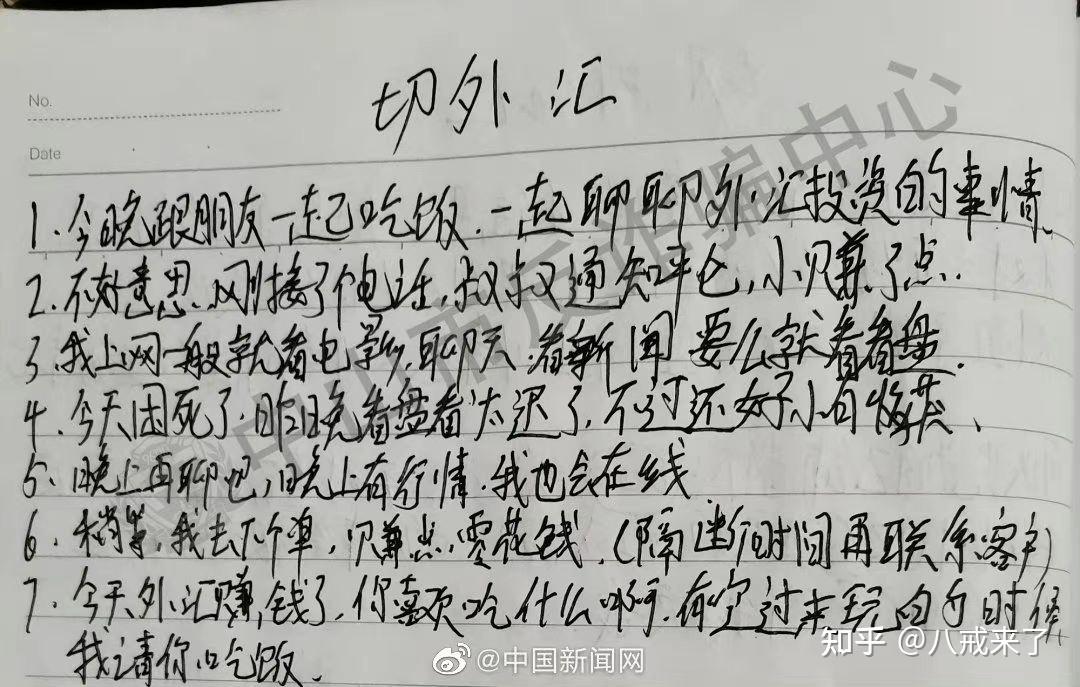 No.
Date
切外汇
1.今晚跟朋友一起吃饭.一起聊聊外汇投资的事情.
2.不好意思.刚接了个电话,叔叔通知平仓,小赚了点.
3.我上网一般就看电影,聊天.看新闻 要么就看看盘.
4.今天困死了.昨晚看盘看太迟了.不过还好小有收获、
5、晚上再聊吧,晚上有行情.我也会在线.
6.稍等,我去下个单,赚点零花钱.(隔断时间再联系客户)
7.今天外汇赚钱了.你喜欢吃什么啊.有空过来玩的时候
我请你吃饭.
中山市反诈骗中心
@中国新闻网
知乎 @八戒来了